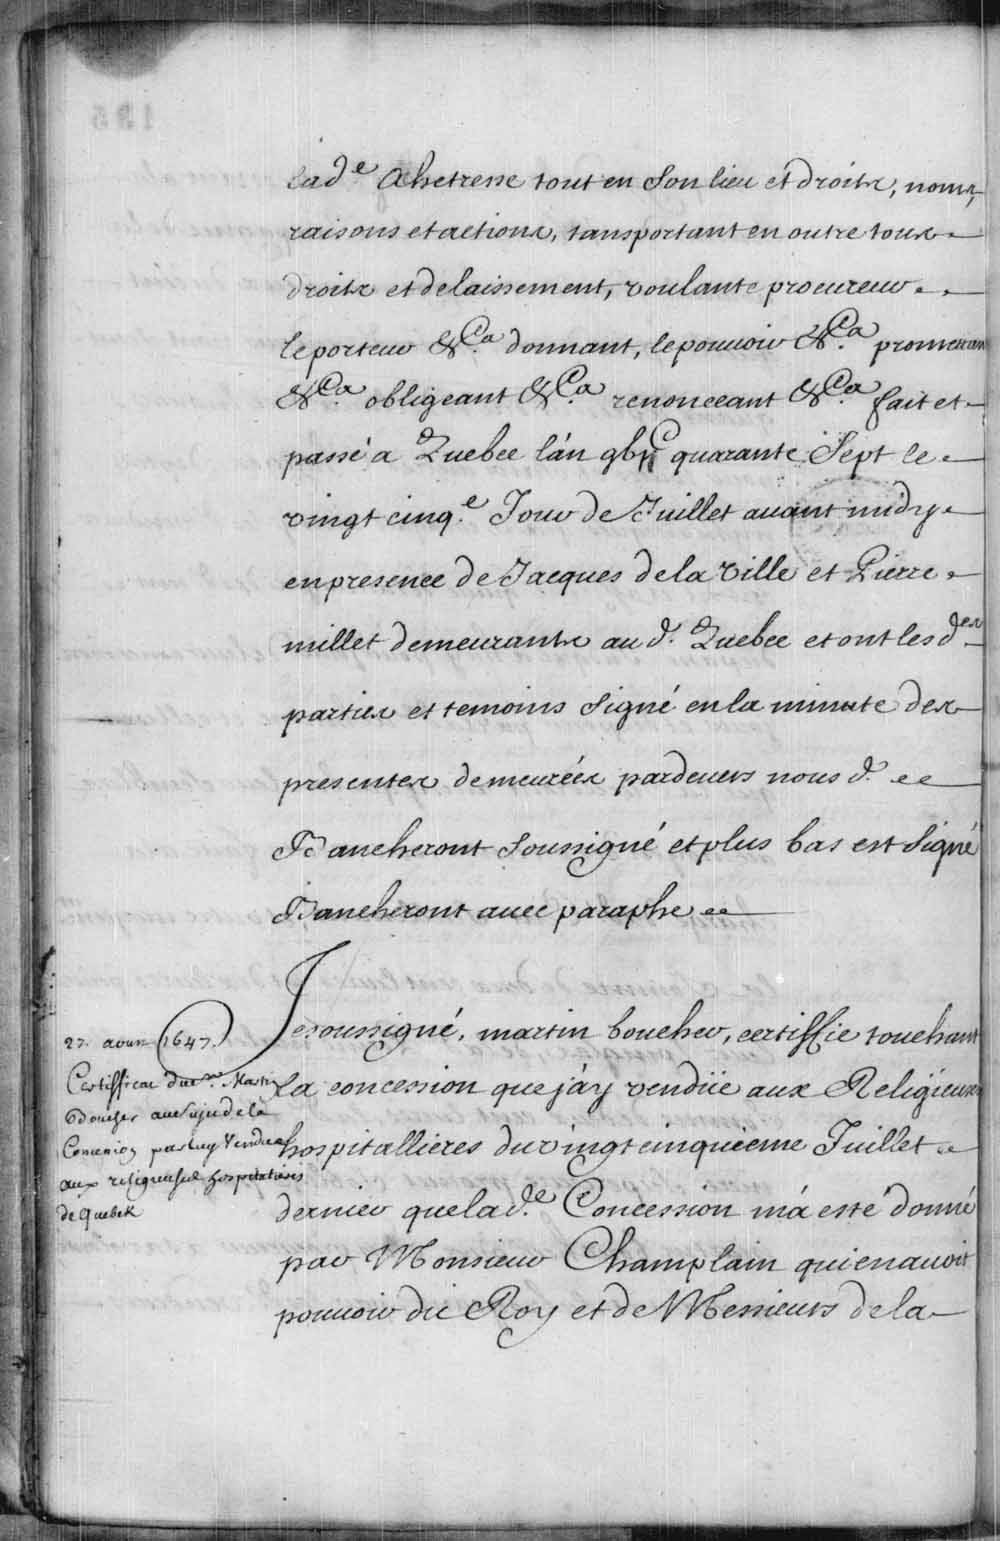 lad.e Achetresse tout en son lieu et droits, noms,
raisons et actions, tansportant en outre tous
droits et delaissement, voulants procureur
le porteur &Ca. donnant, le pouvoir &Ca. promettant
&Ca. obligeant &Ca. renonceant &Ca. fait et
passé a Quebec l'án gbjC quarante Sept le
vingt cinq.e Jour de Juillet auant midy
en presence de Jacques de la Ville et Pierre
millet demeurants au d. Quebec et ont les d.es
parties et temoins signé en la minute des
presentes demeurées pardeuers nous d.
Bancheront soussigné et plus bas est signé
Bancheront auec paraphe
Je soussigné, martin boucher, certiffie touchant
la concession que j'áy vendüe aux Religieuses
hospitallieres du vingt cinquieme Juillet
dernier que lad.e Concession m'á esté donné
par Monsieur Champlain qui en auoit
pouuoir du Roy et de Messieurs de la
27. aoust 1647.
Certifficat du Sr. Martin
Boucher au Sujet de la
Concession par luy Vendue
aux religieuses hospitalieres
de Quebek
135